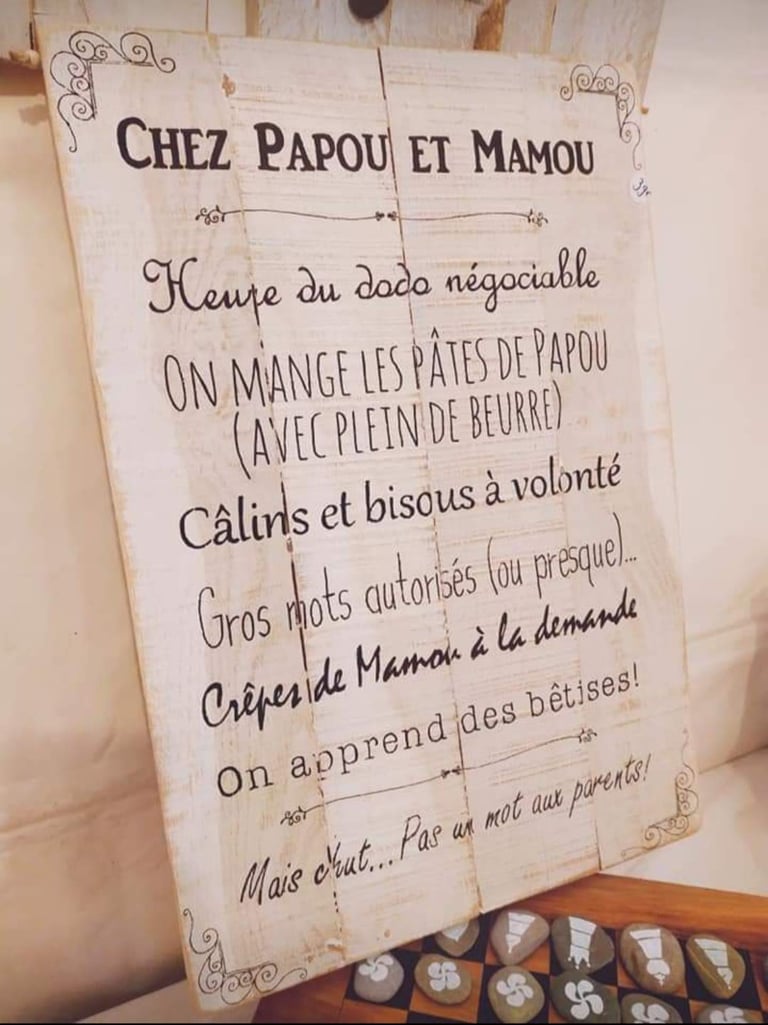 CHEZ PAPOU ET MAMOU
39,-
Heure du dodo négociable
ON MANGE LES PÂTES DE PAPOU
(AVEC PLEIN DE BEURRE)
Câlins et bisous à volonté
Gros mots autorisés (ou presque)...
Crêpes de Mamou à la demande
On apprend des bêtises!
Mais chut... Pas un mot aux parents!